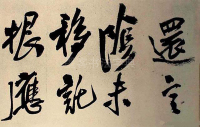 還言
陰未
移託
根應